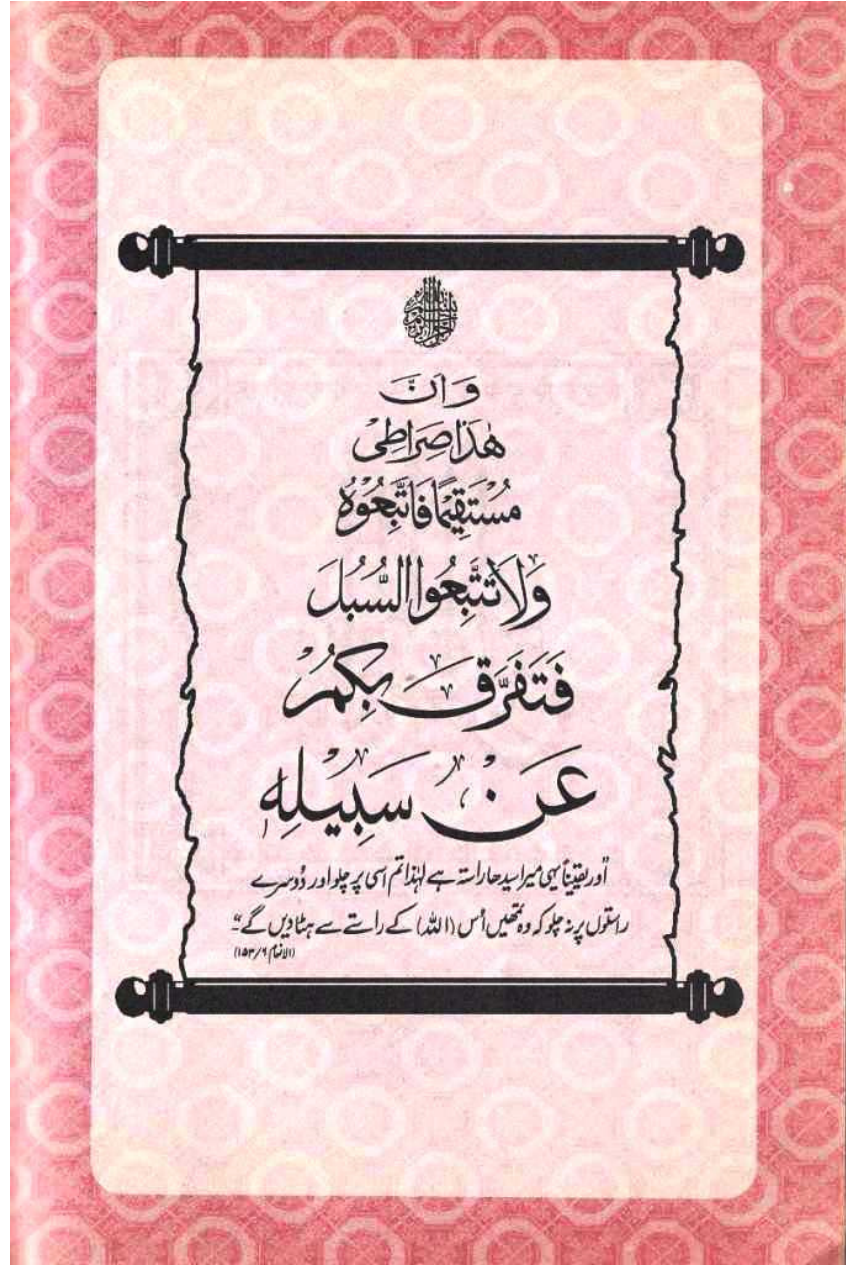 بسم الله الرحمن الرحيم
وَاَنَّ
هٰذَا صِرَاطِيْ
مُسْتَقِيْمًا فَاتَّبِعُوْهُ
وَلَا تَتَّبِعُوا السُّبُلَ
فَتَفَرَّقَ بِكُمْ
عَنْ سَبِيْلِهٖ
"اور یقیناً یہی میرا سیدھا راستہ ہے لہٰذا تم اسی پر چلو اور دُوسرے
راستوں پر نہ چلو کہ وہ تمھیں اُس (اللہ) کے راستے سے ہٹا دیں گے۔"
(الانعام ۶/۱۵۳)